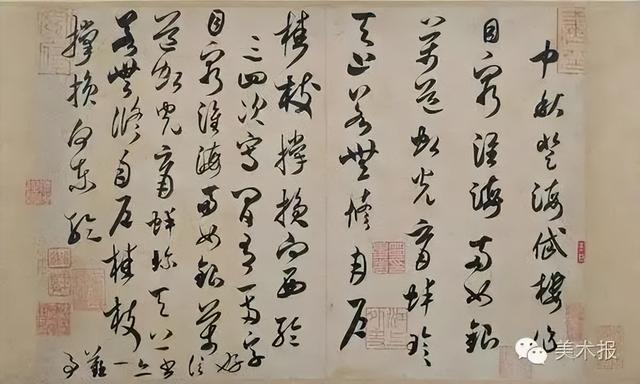 中秋登海岱樓作
目窮淮海兩如銀
萬道虹光育蚌珍
天上若無修月戶
桂枝撐損向西輪
三四次寫間有一兩字好
信書亦一難事
目窮淮海兩如銀萬
道虹光育蚌珍天上
若無修月戶桂枝
撐損向東輪
美术报